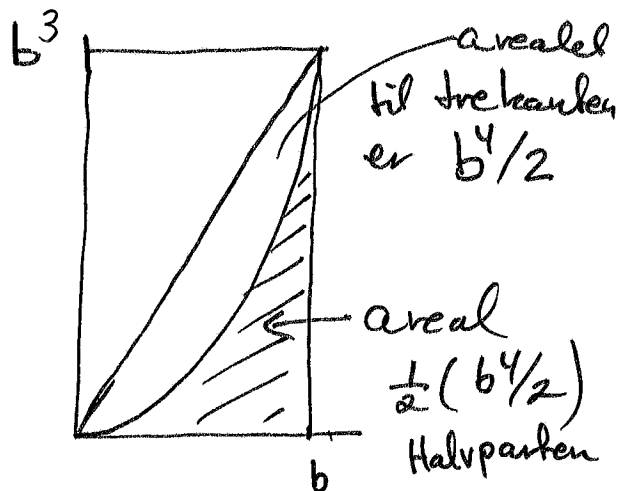 b³
arealet
til trekanten
er b⁴/2
areal
½(b⁴/2)
Halvparten
b